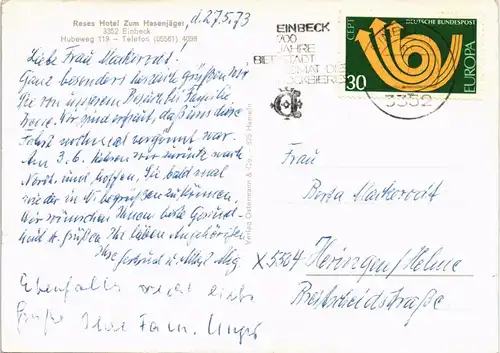 Reses Hotel Zum Hasenjäger
3352 Einbeck
Hubeweg 119 - Telefon (05561) 4098
d. 27.5.73
Liebe Frau Markorrat.
Ganz besonders herzliche grüßen wir
Sie von unserem Besuch bei Familie
Wir sind erfreut, daß uns diese
Fahrt nochmal vergönnt war.
Am 3.6. fahren wir zurück nach
Nordh. und hoffen, Sie bald mal
wieder in begrüßen zu können.
Wir wünschen Ihnen beste Gesund-
und grüßen Ihre lieben Angehörigen
Ihre Gertrud u.
Ebenfalls recht liebe
Grüße Ihre Fam.
Verlag Ostermann & Co., 325 Hameln
EINBECK
700
JAHRE
BIERSTADT
HEIMAT DES
BOCKBIERES
3352
CEPT
DEUTSCHE BUNDESPOST
30
EUROPA
Frau
Berta Markorrat
X 5504 Heringen/Helme
Breitscheidstraße